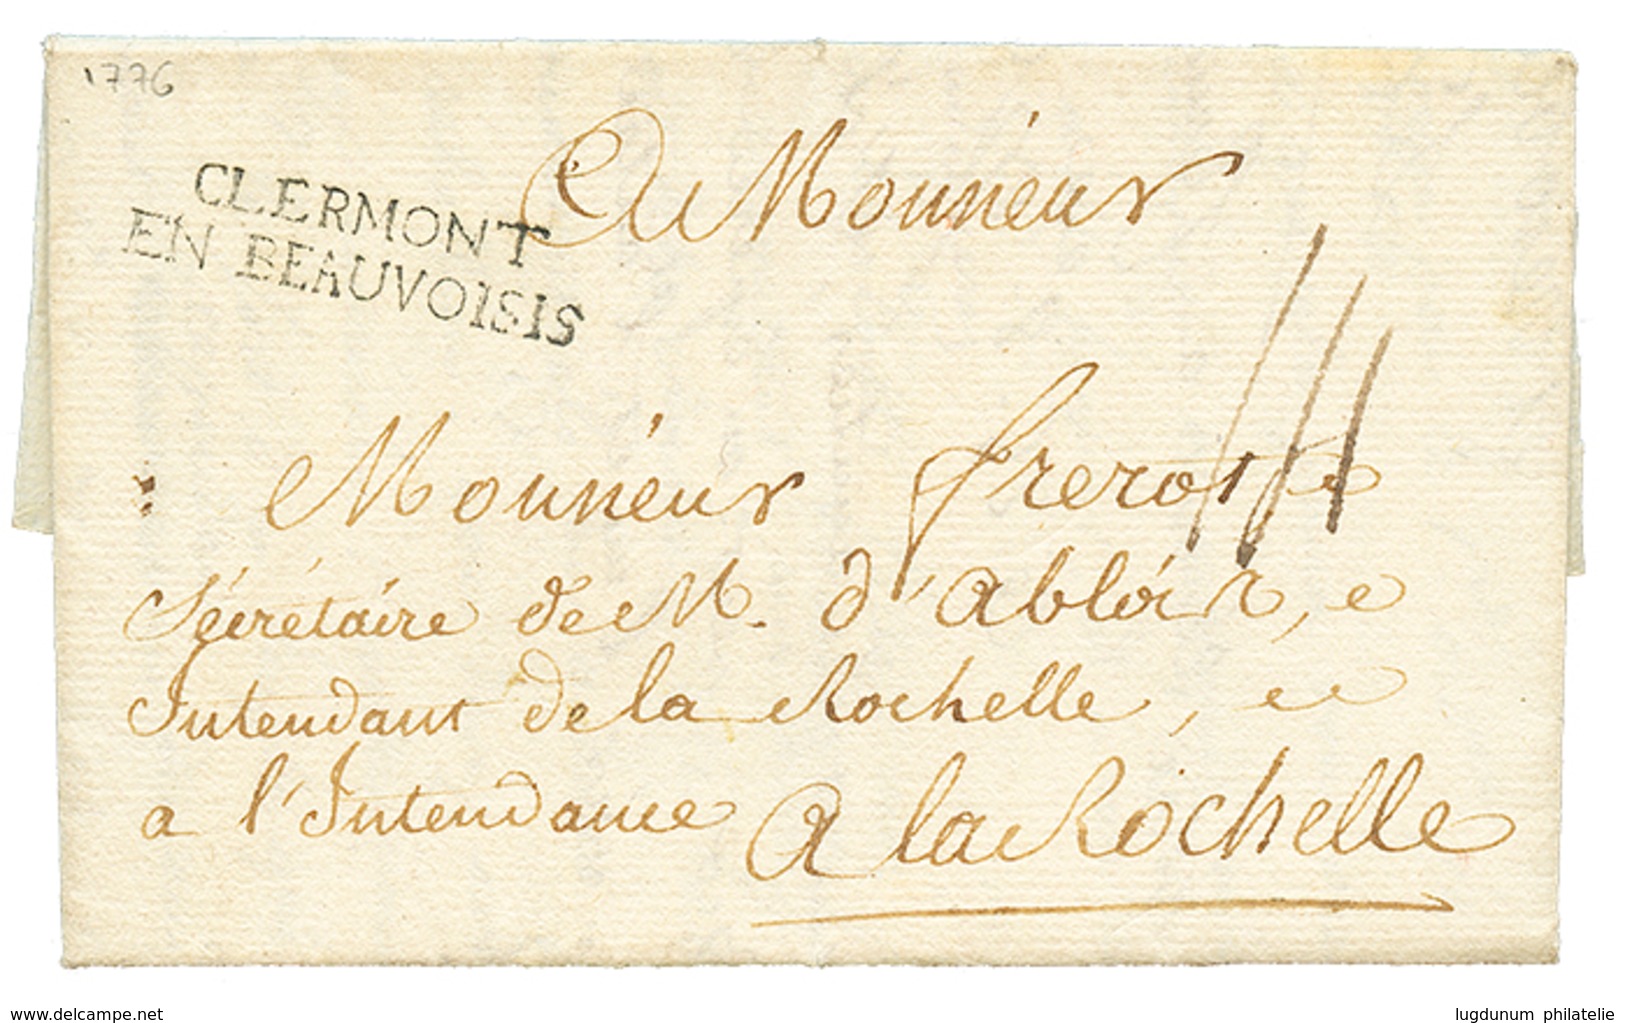 1776
CLERMONT
EN BEAUVOISIS
A Monsieur
Monsieur
Sécrétaire de M. d'Abloix,
Intendant de la Rochelle,
a l'Intendance A la Rochelle
delcampe.net
lugdunum philatelie